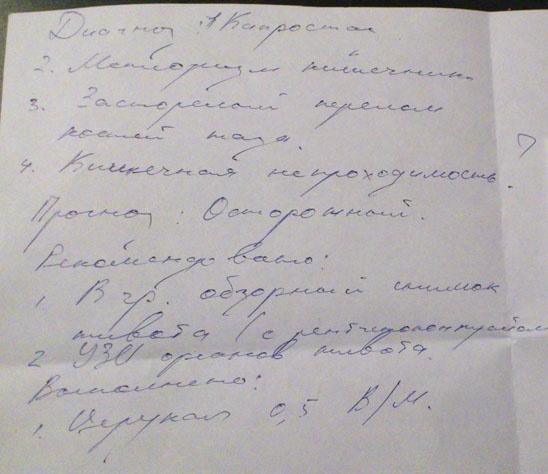 Диагноз: 1. Капростаз
2. Метеоризм кишечника
3. Застарелый перелом
костей таза.
4. Кишечная непроходимость. ?
Прогноз: Осторожный.
Рекомендовано:
1. В гр. обзорный снимок
живота (с рентгеноконтрастом
2 УЗИ органов живота.
Выполнено:
1. Церукал 0,5 В/М.